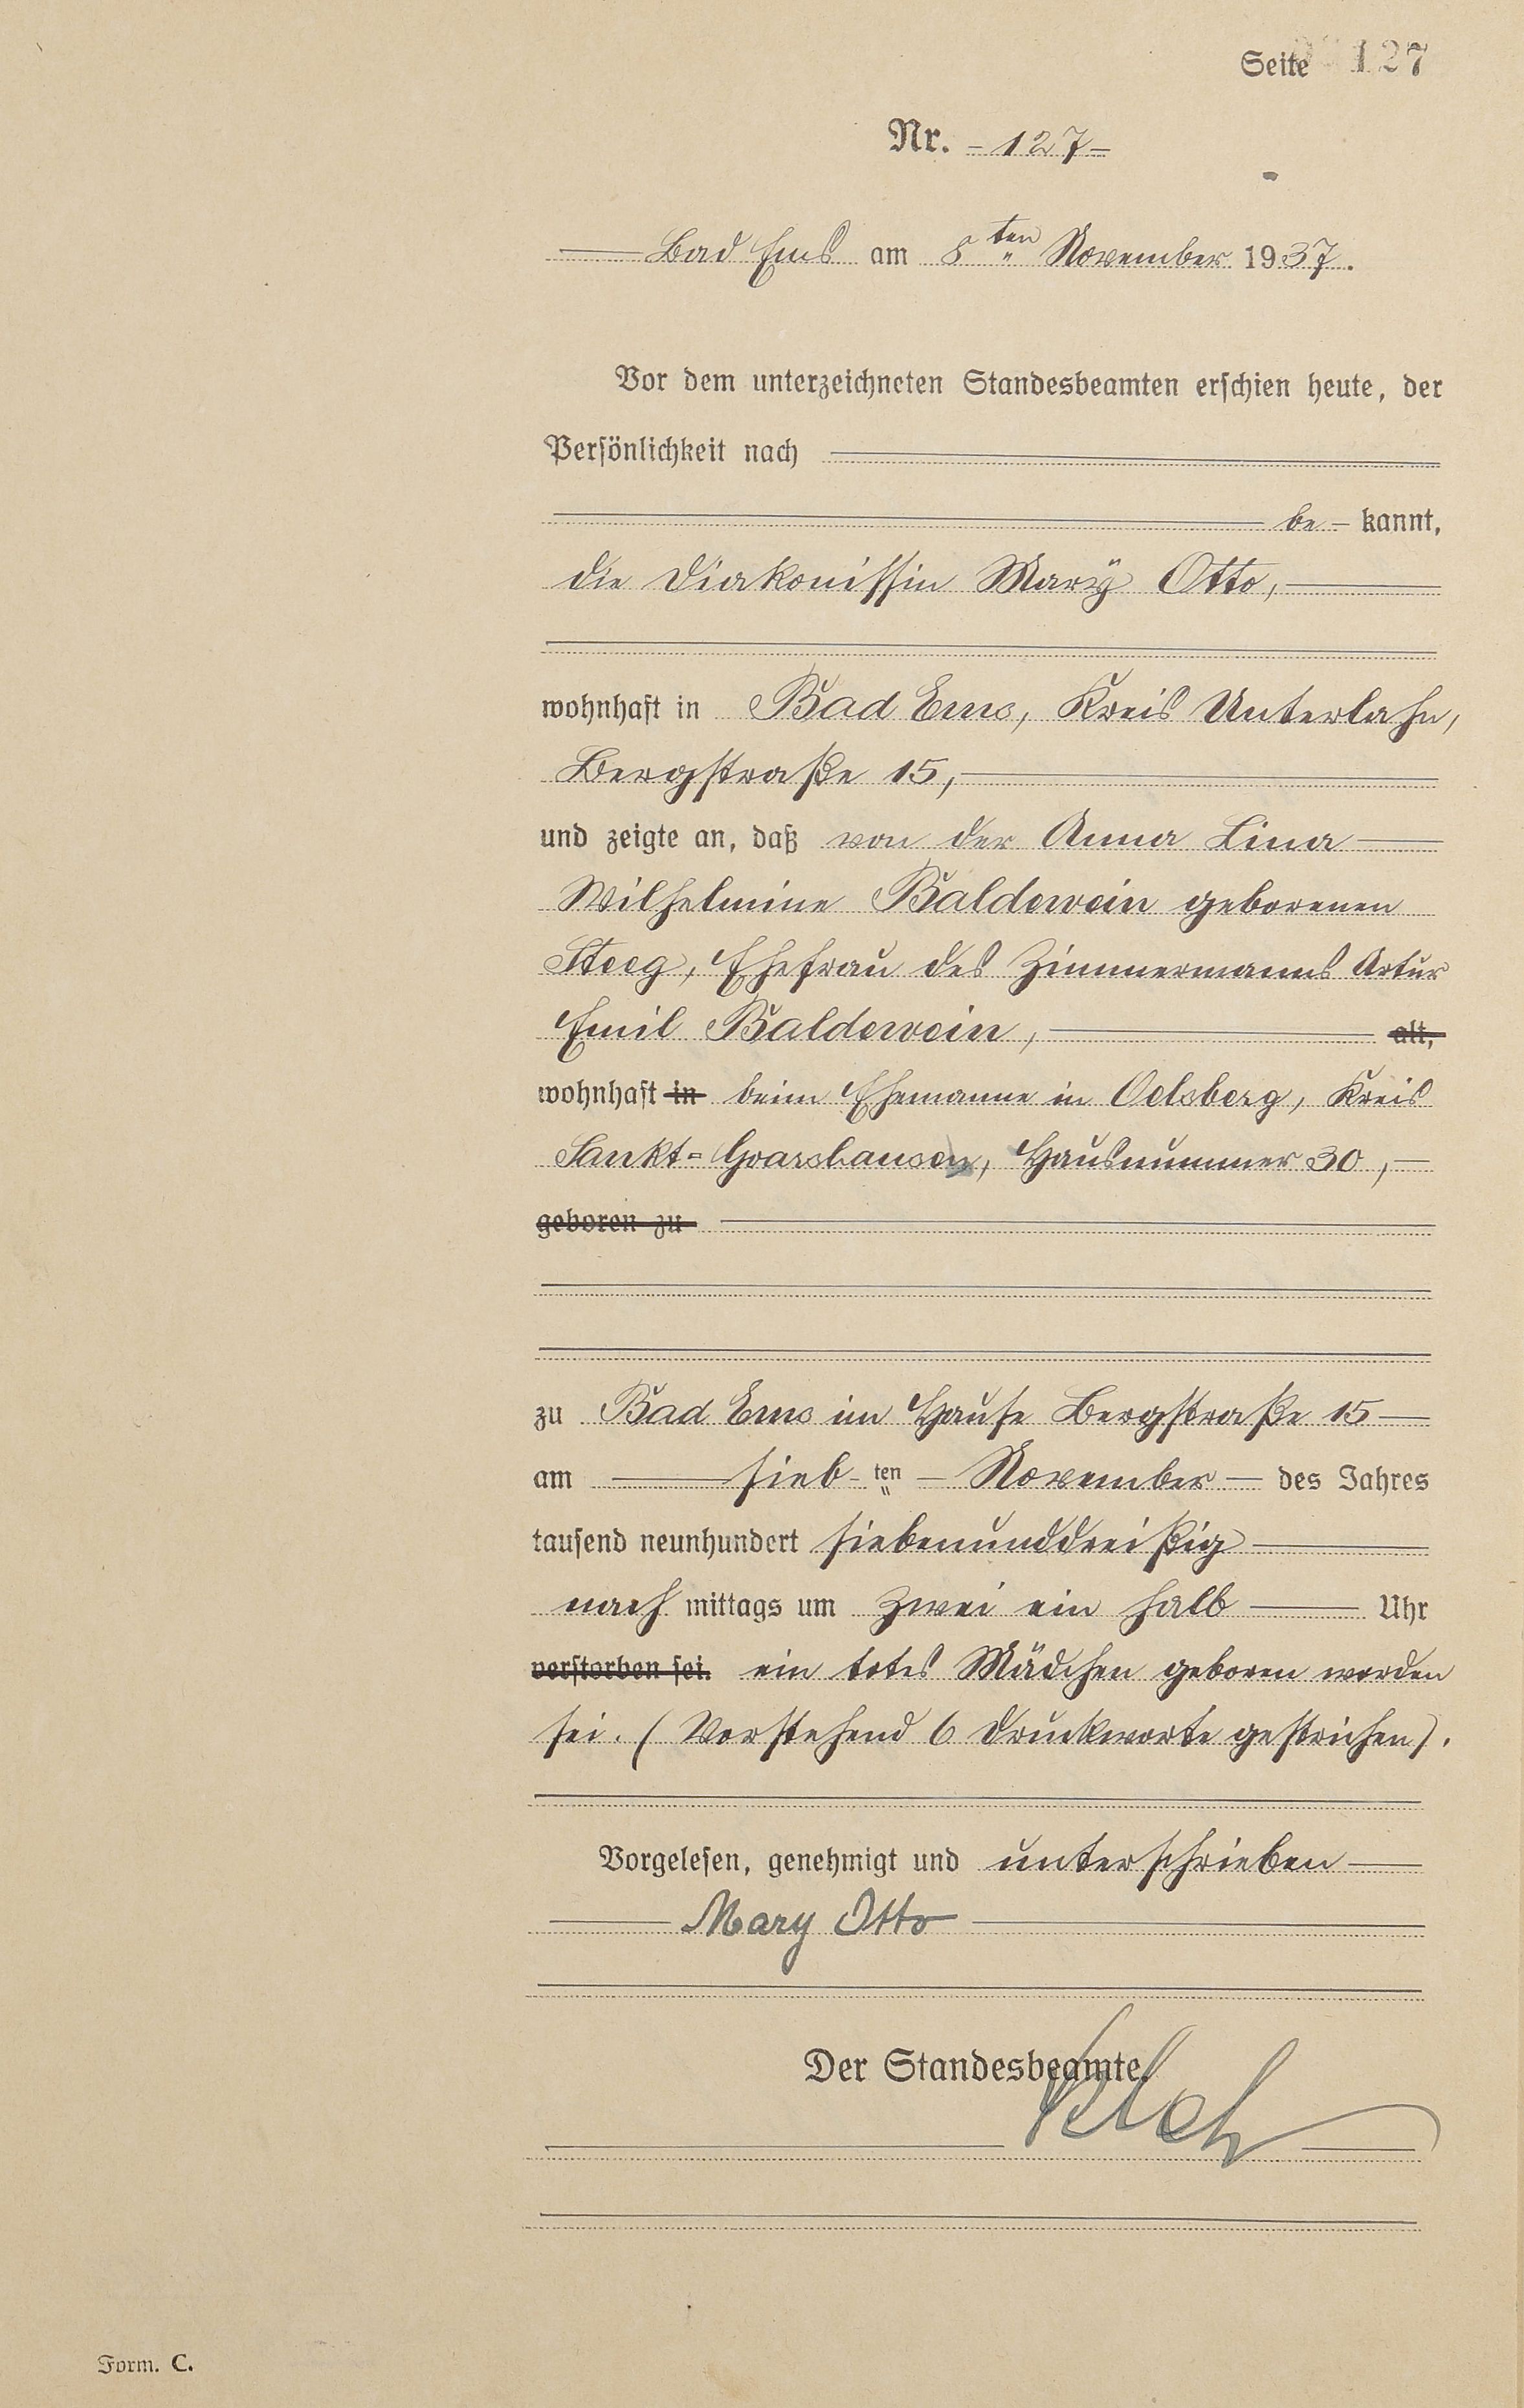 Seite 127
Nr. - 127 -
Bad Ems am 8ten November 1937.
Vor dem unterzeichneten Standesbeamten erschien heute, der
Persönlichkeit nach
be - kannt,
die Diakonissin Mary Otto,
wohnhaft in Bad Ems, Kreis Unterlahn,
Bergstraße 15,
und zeigte an, daß von der Anna Lina
Wilhelmine Baldowein geborenen
Steeg, Ehefrau des Zimmermanns Artur
Emil Baldowein, alt,
wohnhaft in beim Ehemanne in Oelsberg, Kreis
Sankt-Goarshausen, Hausnummer 30,
geboren zu
zu Bad Ems im Hause Bergstraße 15
am sieb-ten November des Jahres
tausend neunhundert siebenunddreißig
nach mittags um zwei ein halb Uhr
verstorben sei. ein totes Mädchen geboren worden
sei. (Vorstehend 6 Druckworte gestrichen).
Vorgelesen, genehmigt und unterschrieben
Mary Otto
Der Standesbeamte.
Form. C.